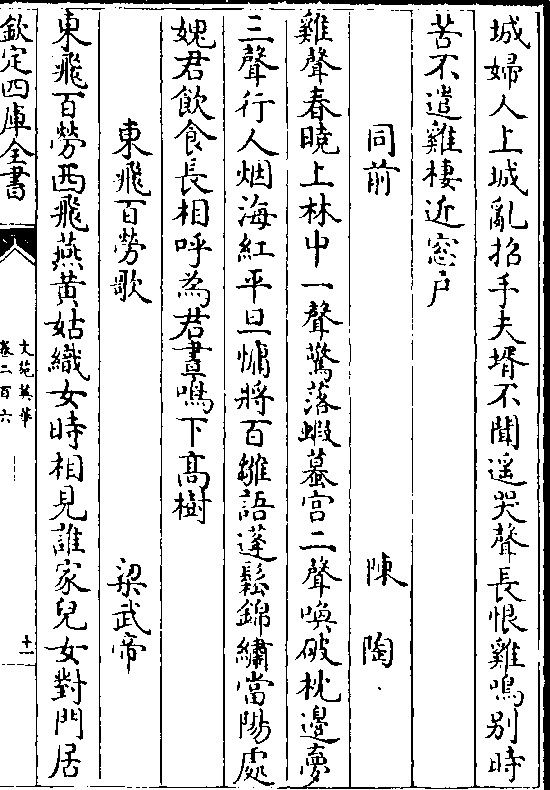 城婦人上城亂招手夫壻不聞遥哭聲長恨雞鳴别時
苦不遣雞棲近窓戸
同前 陳陶
雞聲春曉上林中一聲驚落蝦蟇宫二聲喚破枕邊夢
三聲行人烟海紅平旦慵將百雛語蓬鬆錦繡當陽處
媿君飲食長相呼為君晝鳴下髙樹
東飛百勞歌 梁武帝
東飛百勞西飛燕黄姑織女時相見誰家兒女對門居
欽定四庫全書
文苑英華
卷二百六
十一